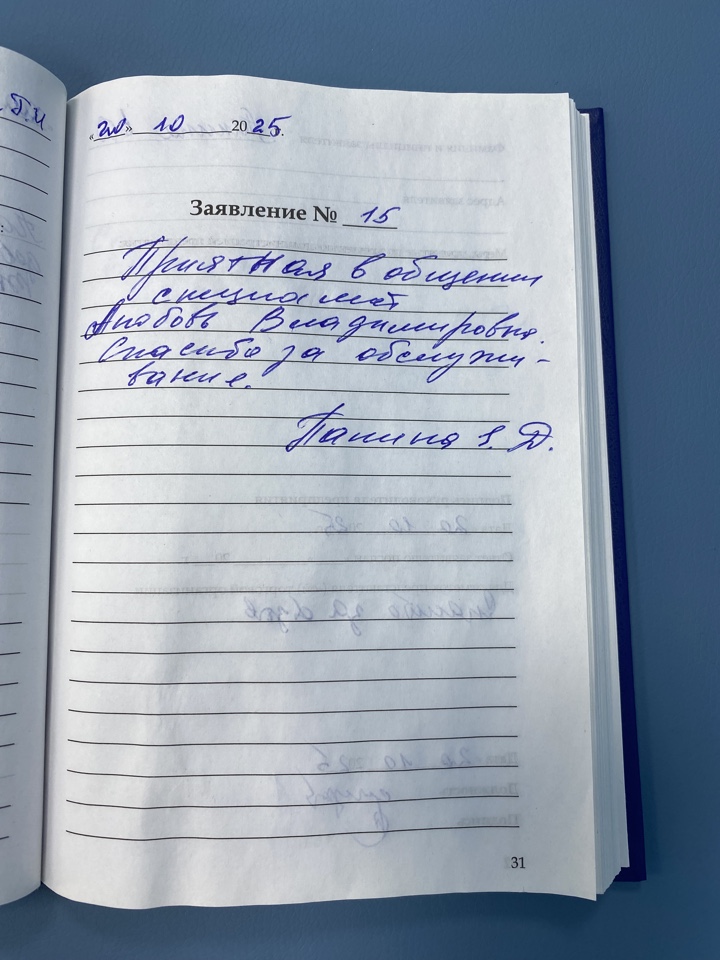 Т.И
«20» 10 2025г.
Заявление № 15
Приятная в общении
специалист
Любовь Владимировна.
Спасибо за обслужи-
вание.
Панина Д.
31